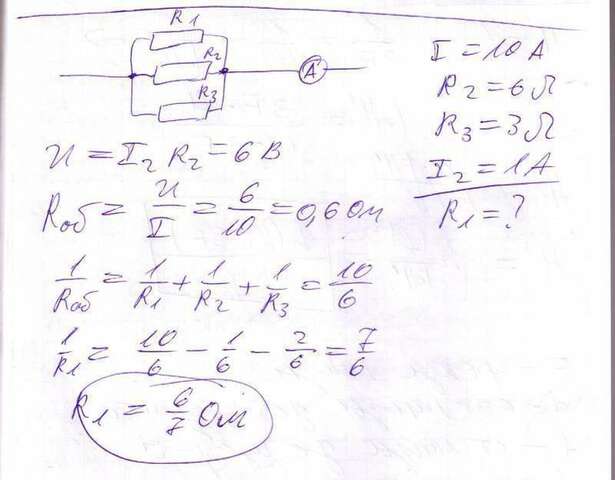 R1
R2
R3
A
I = 10 A
R2 = 6 Ω
R3 = 3 Ω
I2 = 1A
R1 = ?
U = I2 R2 = 6 В
Rоб = U/I = 6/10 = 0,6 Ом
1/Rоб = 1/R1 + 1/R2 + 1/R3 = 10/6
1/R1 = 10/6 - 1/6 - 2/6 = 7/6
R1 = 6/7 Ом